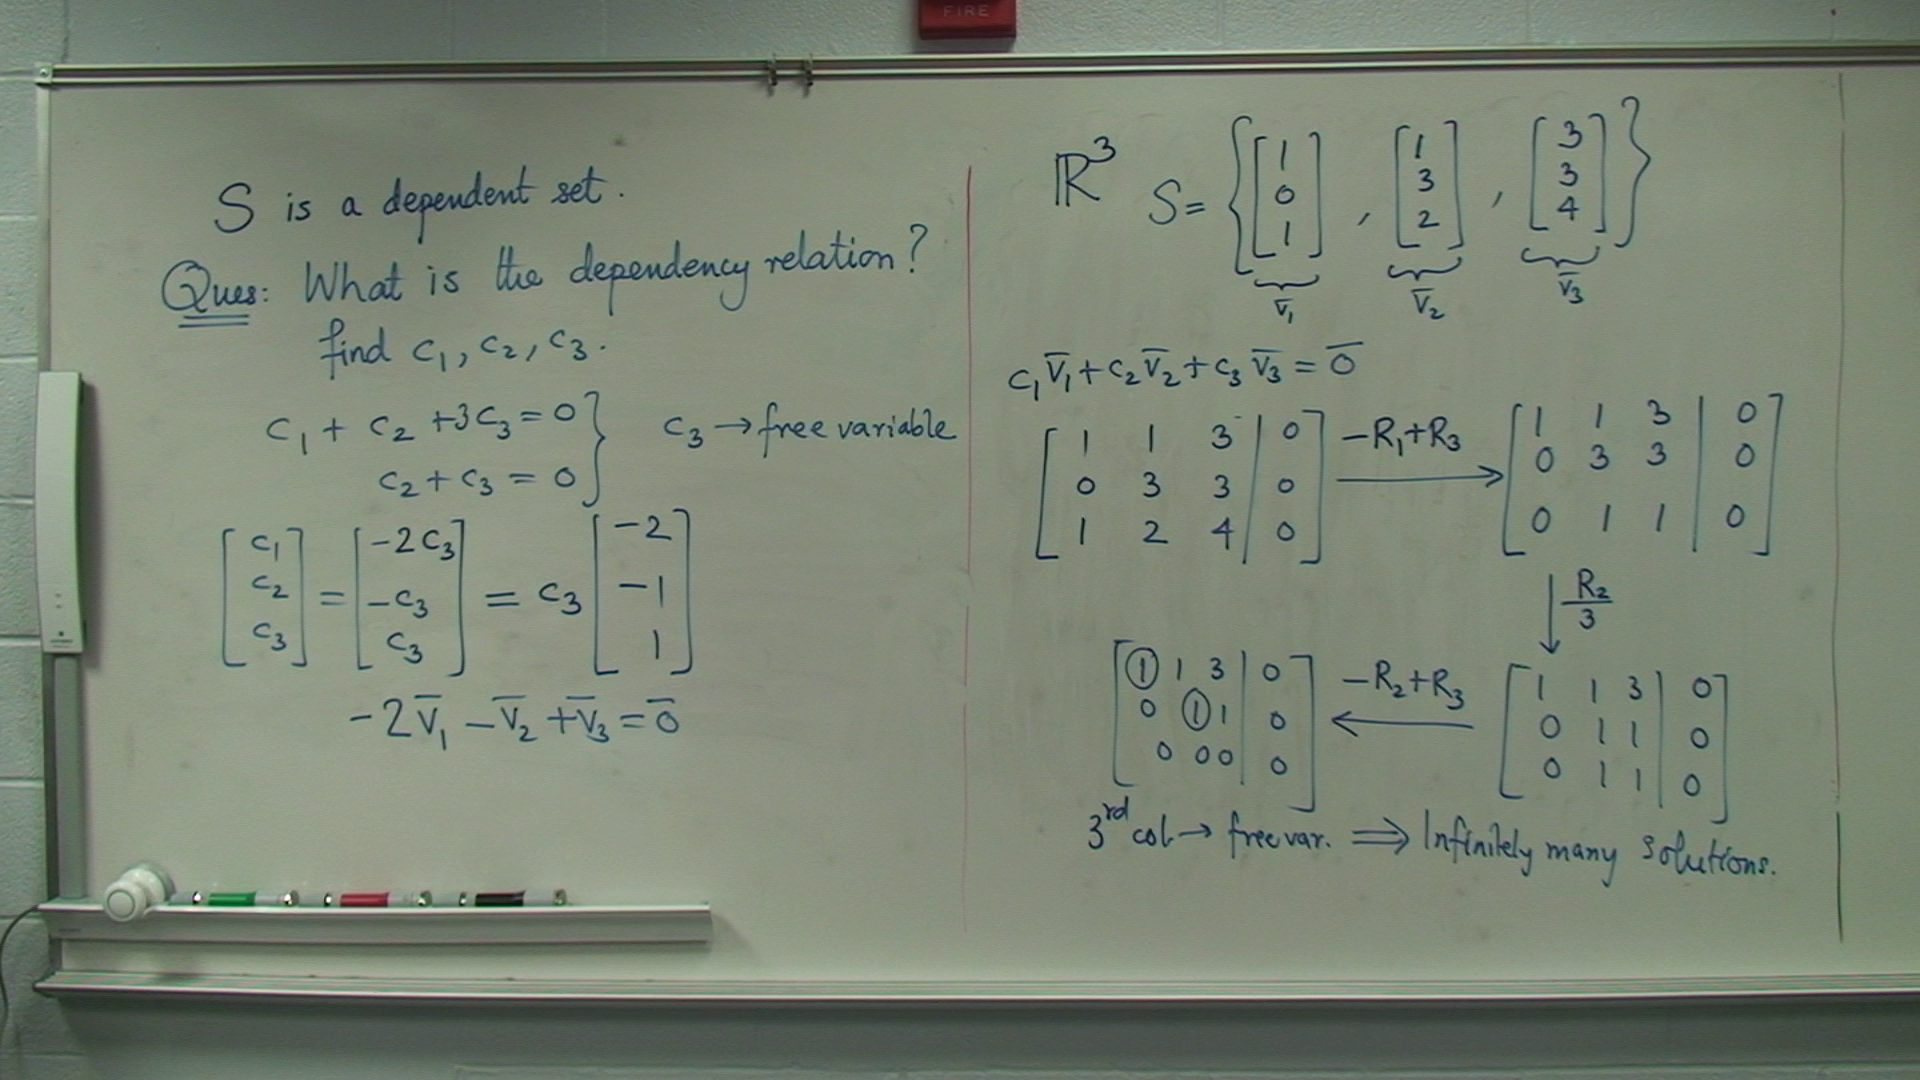 FIRE
S is a dependent set.
Ques: What is the dependency relation?
find c₁, c₂, c₃.
c₁ + c₂ + 3c₃ = 0 } c₃ → free variable
c₂ + c₃ = 0
[c₁ c₂ c₃] = [-2c₃ -c₃ c₃] = c₃ [-2 -1 1]
-2v̅₁ - v̅₂ + v̅₃ = 0̅
ℝ³ S = { [1 0 1], [1 3 2], [3 3 4] }
v̅₁ v̅₂ v̅₃
c₁v̅₁ + c₂v̅₂ + c₃v̅₃ = 0̅
[1 1 3 | 0
0 3 3 | 0
1 2 4 | 0]
-R₁+R₃ →
[1 1 3 | 0
0 3 3 | 0
0 1 1 | 0]
↓ R₂/3
[1 1 3 | 0
0 1 1 | 0
0 1 1 | 0]
-R₂+R₃ ←
[① 1 3 | 0
0 ① 1 | 0
0 0 0 | 0]
3rd col → free var. ⇒ Infinitely many solutions.